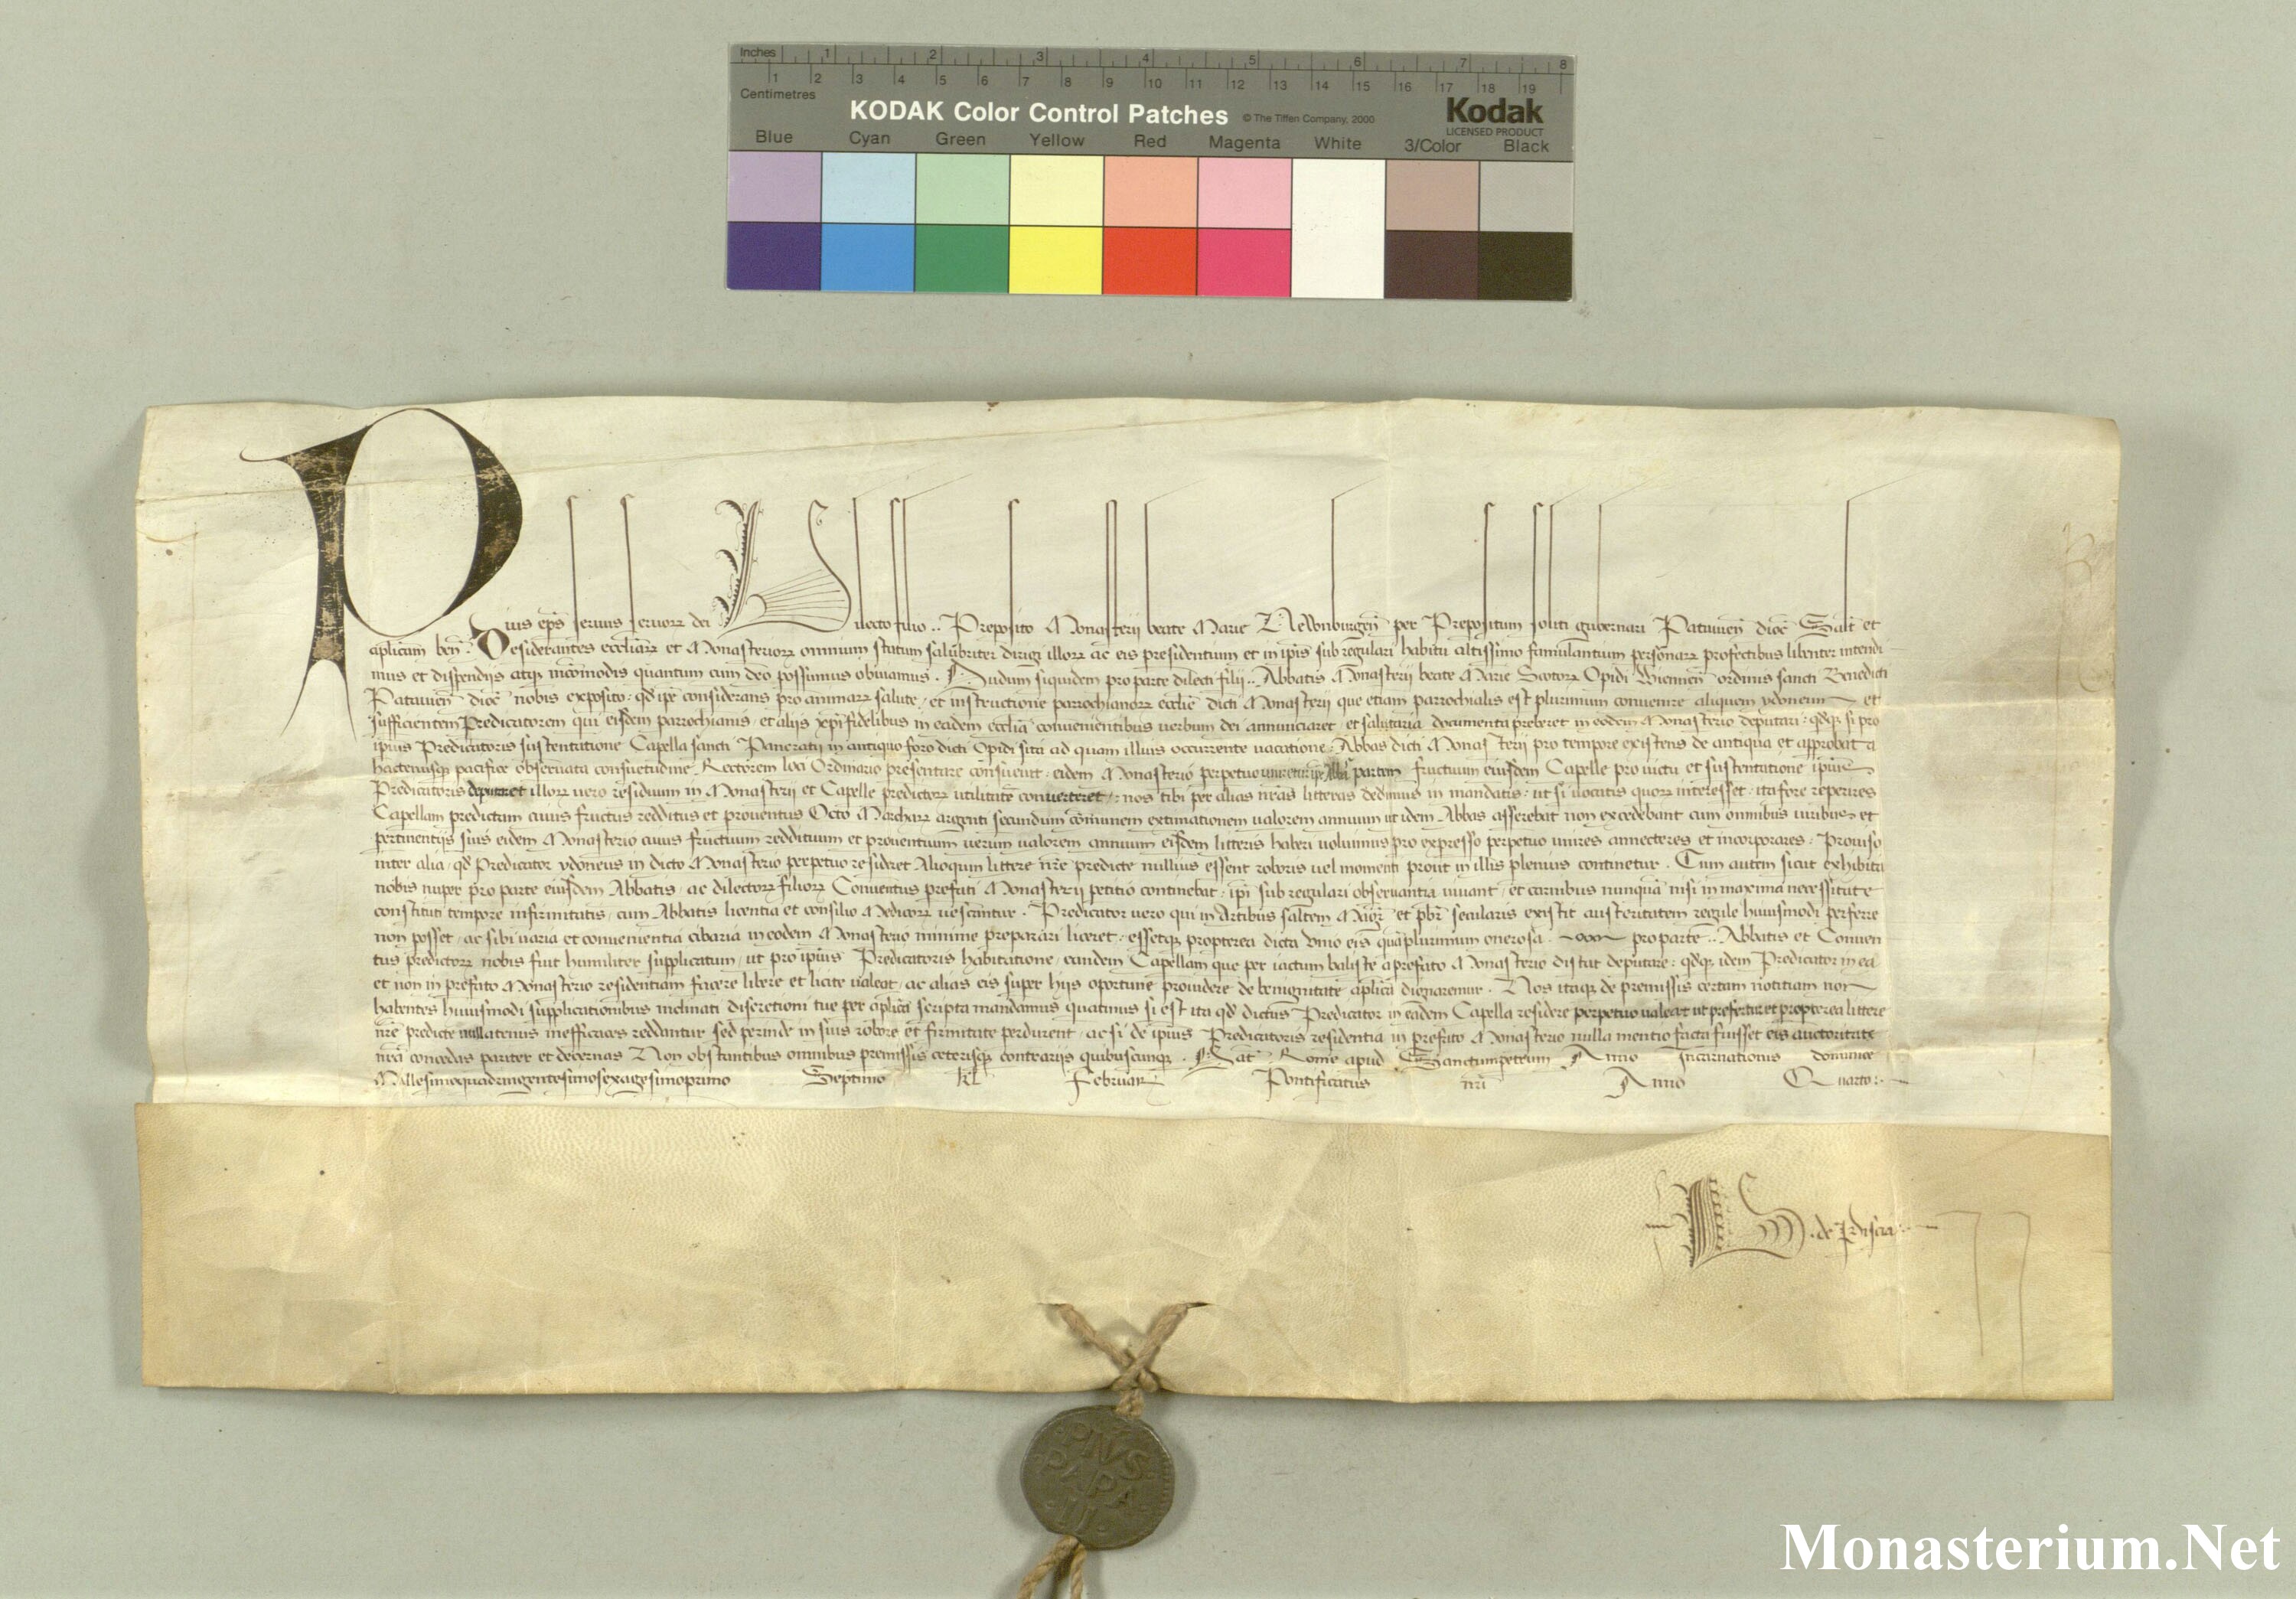 Inches 1 2 3 4 5 6 7 8
1 2 3 4 5 6 7 8 9 10 11 12 13 14 15 16 17 18 19
Centimetres
KODAK Color Control Patches © The Tiffen Company, 2000 Kodak
LICENSED PRODUCT
Blue Cyan Green Yellow Red Magenta White 3/Color Black
Pius ep̄s servus servorꝝ dei Dilecto filio .. Preposito Monasterii beate Marie Newnburgeñ per Prepositum soliti gubernari Patavieñ dioc̄ Salt̄ et
aplicam ben̄. Desiderantes ecclīarꝝ et Monasteriorꝝ omnium statum salubriter dirigi illorꝝ ac eis presidentium et in ip̄is sub regulari habitu altissimo famulantium personarꝝ profectibus libenter intendi
mus et dispendijs atqꝫ incōmodis quantum cum deo possumus obviamus . Dudum siquidem pro parte dilecti filij .. Abbatis Monasterij beate Marie Scotorꝝ Opidi Wienneñ ordinis sancti Benedicti
Patavieñ dioc̄ nobis exposito : qd̄ ip̄e considerans pro animarꝝ salute / et instructione parrochianorꝝ ecclīe dicti Monasterij que etiam parrochialis est plurimum convenire aliquem ydoneum et
sufficientem Predicatorem qui eisdem parrochianis / et alijs xp̄ifidelibus in eadem ecclīa convenientibus verbum dei annunciaret / et salutaria documenta preberet in eodem Monasterio deputari : qd̄qꝫ si pro
ipius Predicatoris sustentatione Capella sancti Pancratij in antiquo foro dicti Opidi sita ad quam illius occurrente vacatione / Abbas dicti Monasterij pro tempore existens de antiqua et approbata
hactenusqꝫ pacifice observata consuetudine Rectorem loci Ordinario presentare consuevit / eidem Monasterio perpetuo uniretur ip̄e Abbas partem fructuum eiusdem Capelle pro victu et sustentatione ipius
Predicatoris deputaret illorꝝ vero residuum in Monasterij et Capelle predictorꝝ utilitatē converteret / : nos tibi per alias nr̄as litteras dedimus in mandatis : ut si vocatis quorꝝ interesset : ita fore reperires
Capellam predictam cuius fructus redditus et proventus Octo Marcharꝝ argenti secundum cōmunem extimationem valorem annuum ut idem Abbas asserebat non excedebant cum omnibus iuribus et
pertinentijs suis eidem Monasterio cuius fructuum reddituum et proventuum verum valorem annuum eisdem litteris haberi voluimus pro expresso perpetuo unires annecteres et incorporares : Proviso
inter alia : qd̄ Predicator ydoneus in dicto Monasterio perpetuo resideret Alioquin littere nr̄e predicte nullius essent roboris vel momenti prout in illis plenius continetur . Cum autem sicut exhibita
nobis nuper pro parte eiusdem Abbatis / ac dilectorꝝ filiorꝝ Conventus prefati Monasterij petitio continebat / ip̄i sub regulari observantia vivant / et carnibus nunquā nisi in maxima necessitate
constituti tempore infirmitatis / cum Abbatis licentia et consilio Medicorꝝ vescantur . Predicator vero qui in Artibus saltem Magr̄ et pb̄r secularis existit austeritatem regule huiusmodi perferre
non posset / ac sibi varia et convenientia cibaria in eodem Monasterio minime preparari liceret : essetqꝫ propterea dicta Unio eis quāplurimum onerosa . pro parte .. Abbatis et Conven
tus predictorꝝ nobis fuit humiliter supplicatum / ut pro ipius Predicatoris habitatione / eandem Capellam que per iactum baliste a prefato Monasterio distat deputare : qd̄qꝫ idem Predicator in ea
et non in prefato Monasterio residentiam facere libere et licite valeat / ac alias eis super hijs oportune providere de benignitate aplīca dignaremur . Nos itaqꝫ de premissis certam notitiam non
habentes huiusmodi supplicationibus inclinati discretioni tue per aplīca scripta mandamus quatinus si est ita qd̄ dictus Predicator in eadem Capella residere perpetuo valeat ut prefertur et propterea littere
nr̄e predicte nullatenus inefficaces reddantur sed perinde in suis robore et firmitate perdurent / ac si de ipius Predicatoris residentia in prefato Monasterio nulla mentio facta fuisset eis auctoritate
nr̄a concedas pariter et decernas Non obstantibus omnibus premissis ceterisqꝫ contrarijs quibuscunqꝫ . Dat̄ Rome apud Sanctumpetrum Anno Incarnationis dominice
Millesimoquadringentesimosexagesimoprimo Septimo kl̄ Februarij Pontificatus nr̄i Anno Quarto :
. de Piscia
PIVS
PAPA
II
Monasterium.Net